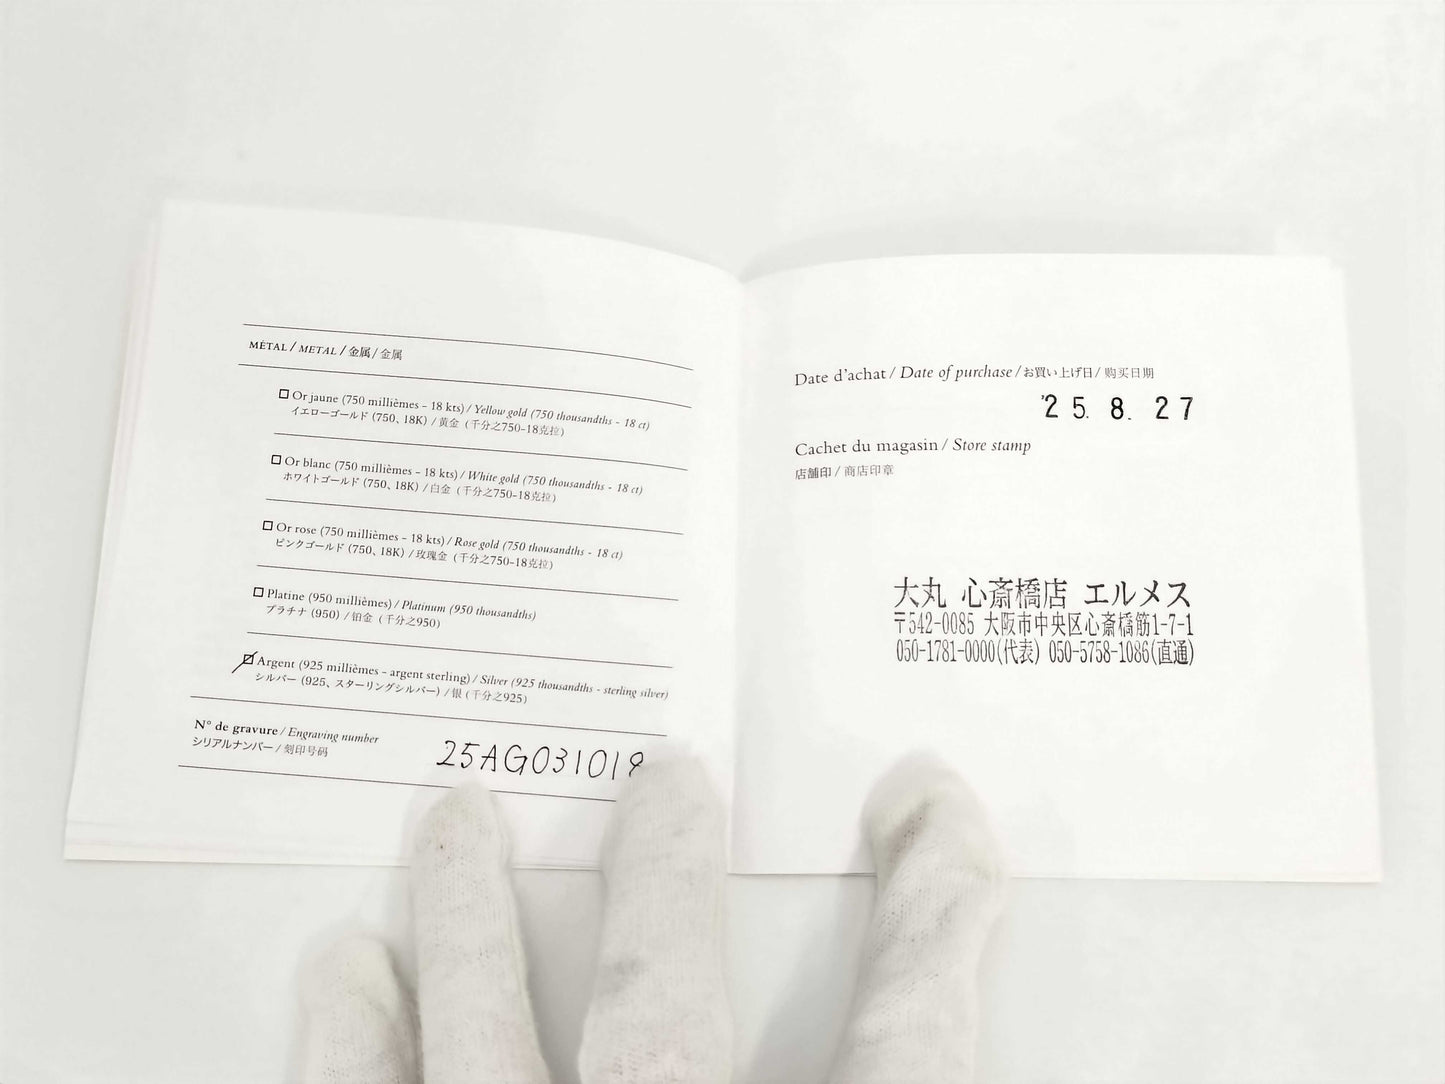 MÉTAL / METAL / 金属 / 金属
Or jaune (750 millièmes – 18 kts) / Yellow gold (750 thousandths - 18 ct)
イエローゴールド (750、18K) / 黄金 (千分之750-18克拉)
Or blanc (750 millièmes - 18 kts) / White gold (750 thousandths - 18 ct)
ホワイトゴールド (750、18K) / 白金 (千分之750-18克拉)
Or rose (750 millièmes - 18 kts) / Rose gold (750 thousandths - 18 ct)
ピンクゴールド (750、18K) / 玫瑰金 (千分之750-18克拉)
Platine (950 millièmes) / Platinum (950 thousandths)
プラチナ (950) / 铂金 (千分之950)
Argent (925 millièmes – argent sterling) / Silver (925 thousandths - sterling silver)
シルバー (925、スターリングシルバー) / 银 (千分之925)
N° de gravure / Engraving number
シリアルナンバー / 刻印号码
25AG031019
Date d'achat / Date of purchase / お買い上げ日 / 购买日期
'25. 8. 27
Cachet du magasin / Store stamp
店舗印 / 商店印章
大丸 心斎橋店 エルメス
〒542-0085 大阪市中央区心斎橋筋1-7-1
050-1781-0000(代表) 050-5758-1086(直通)